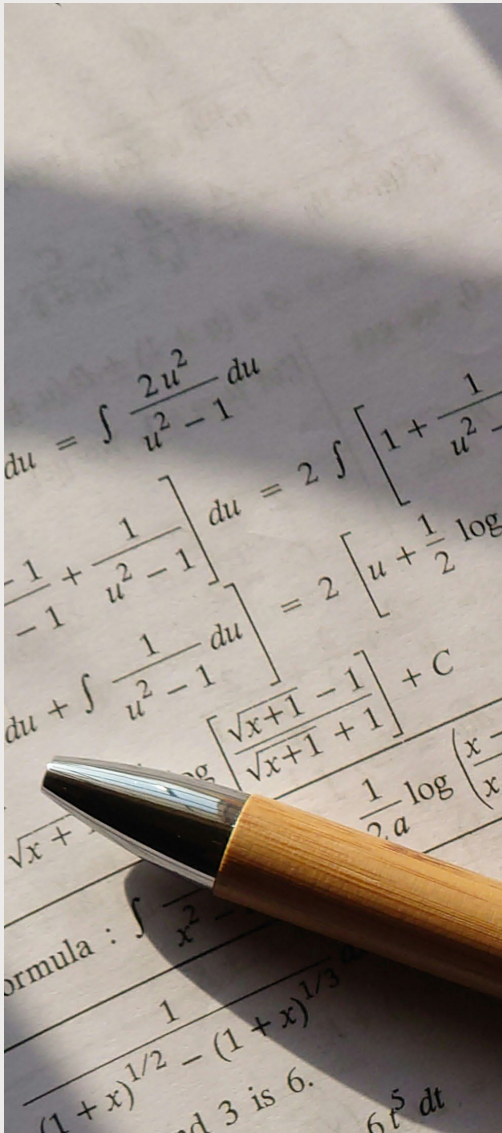 du = ∫ 2u² / u² − 1 du
−1 / − 1 + 1 / u² − 1 ] du = 2 ∫ [ 1 + 1 / u² −
du + ∫ 1 / u² − 1 du ] = 2 [ u + 1/2 log
√x + [ √x+1 − 1 / √x+1 + 1 ] + C
ormula : ∫ x² − 1 / 2a log ( x − / x
1 / (1 + x)^1/2 − (1 + x)^1/3
d 3 is 6.
6t⁵ dt